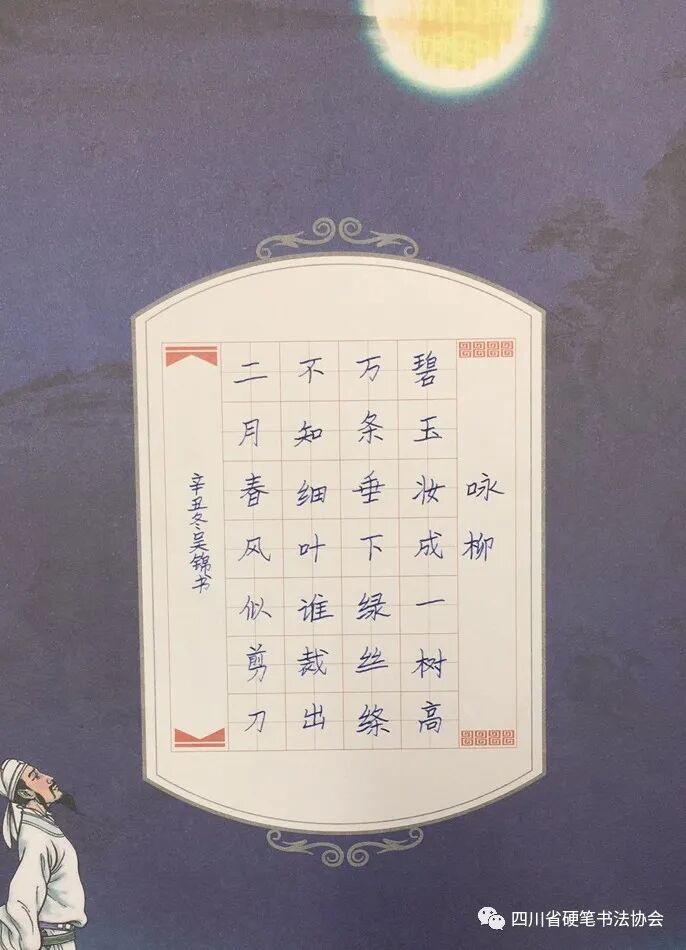 咏柳
碧玉妆成一树高
万条垂下绿丝绦
不知细叶谁裁出
二月春风似剪刀
辛丑冬吴锦书
四川省硬笔书法协会